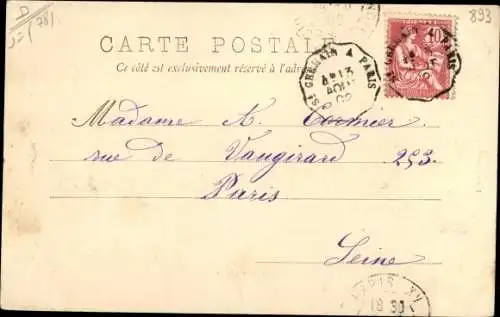 D
(98)
893
CARTE POSTALE
Ce côté est exclusivement réservé à l'adre
ST GERMAIN A PARIS
13
AOUT
02
10
Madame A. Cormier
rue de Vaugirard 293.
Paris
Seine
PARIS XV
18 30